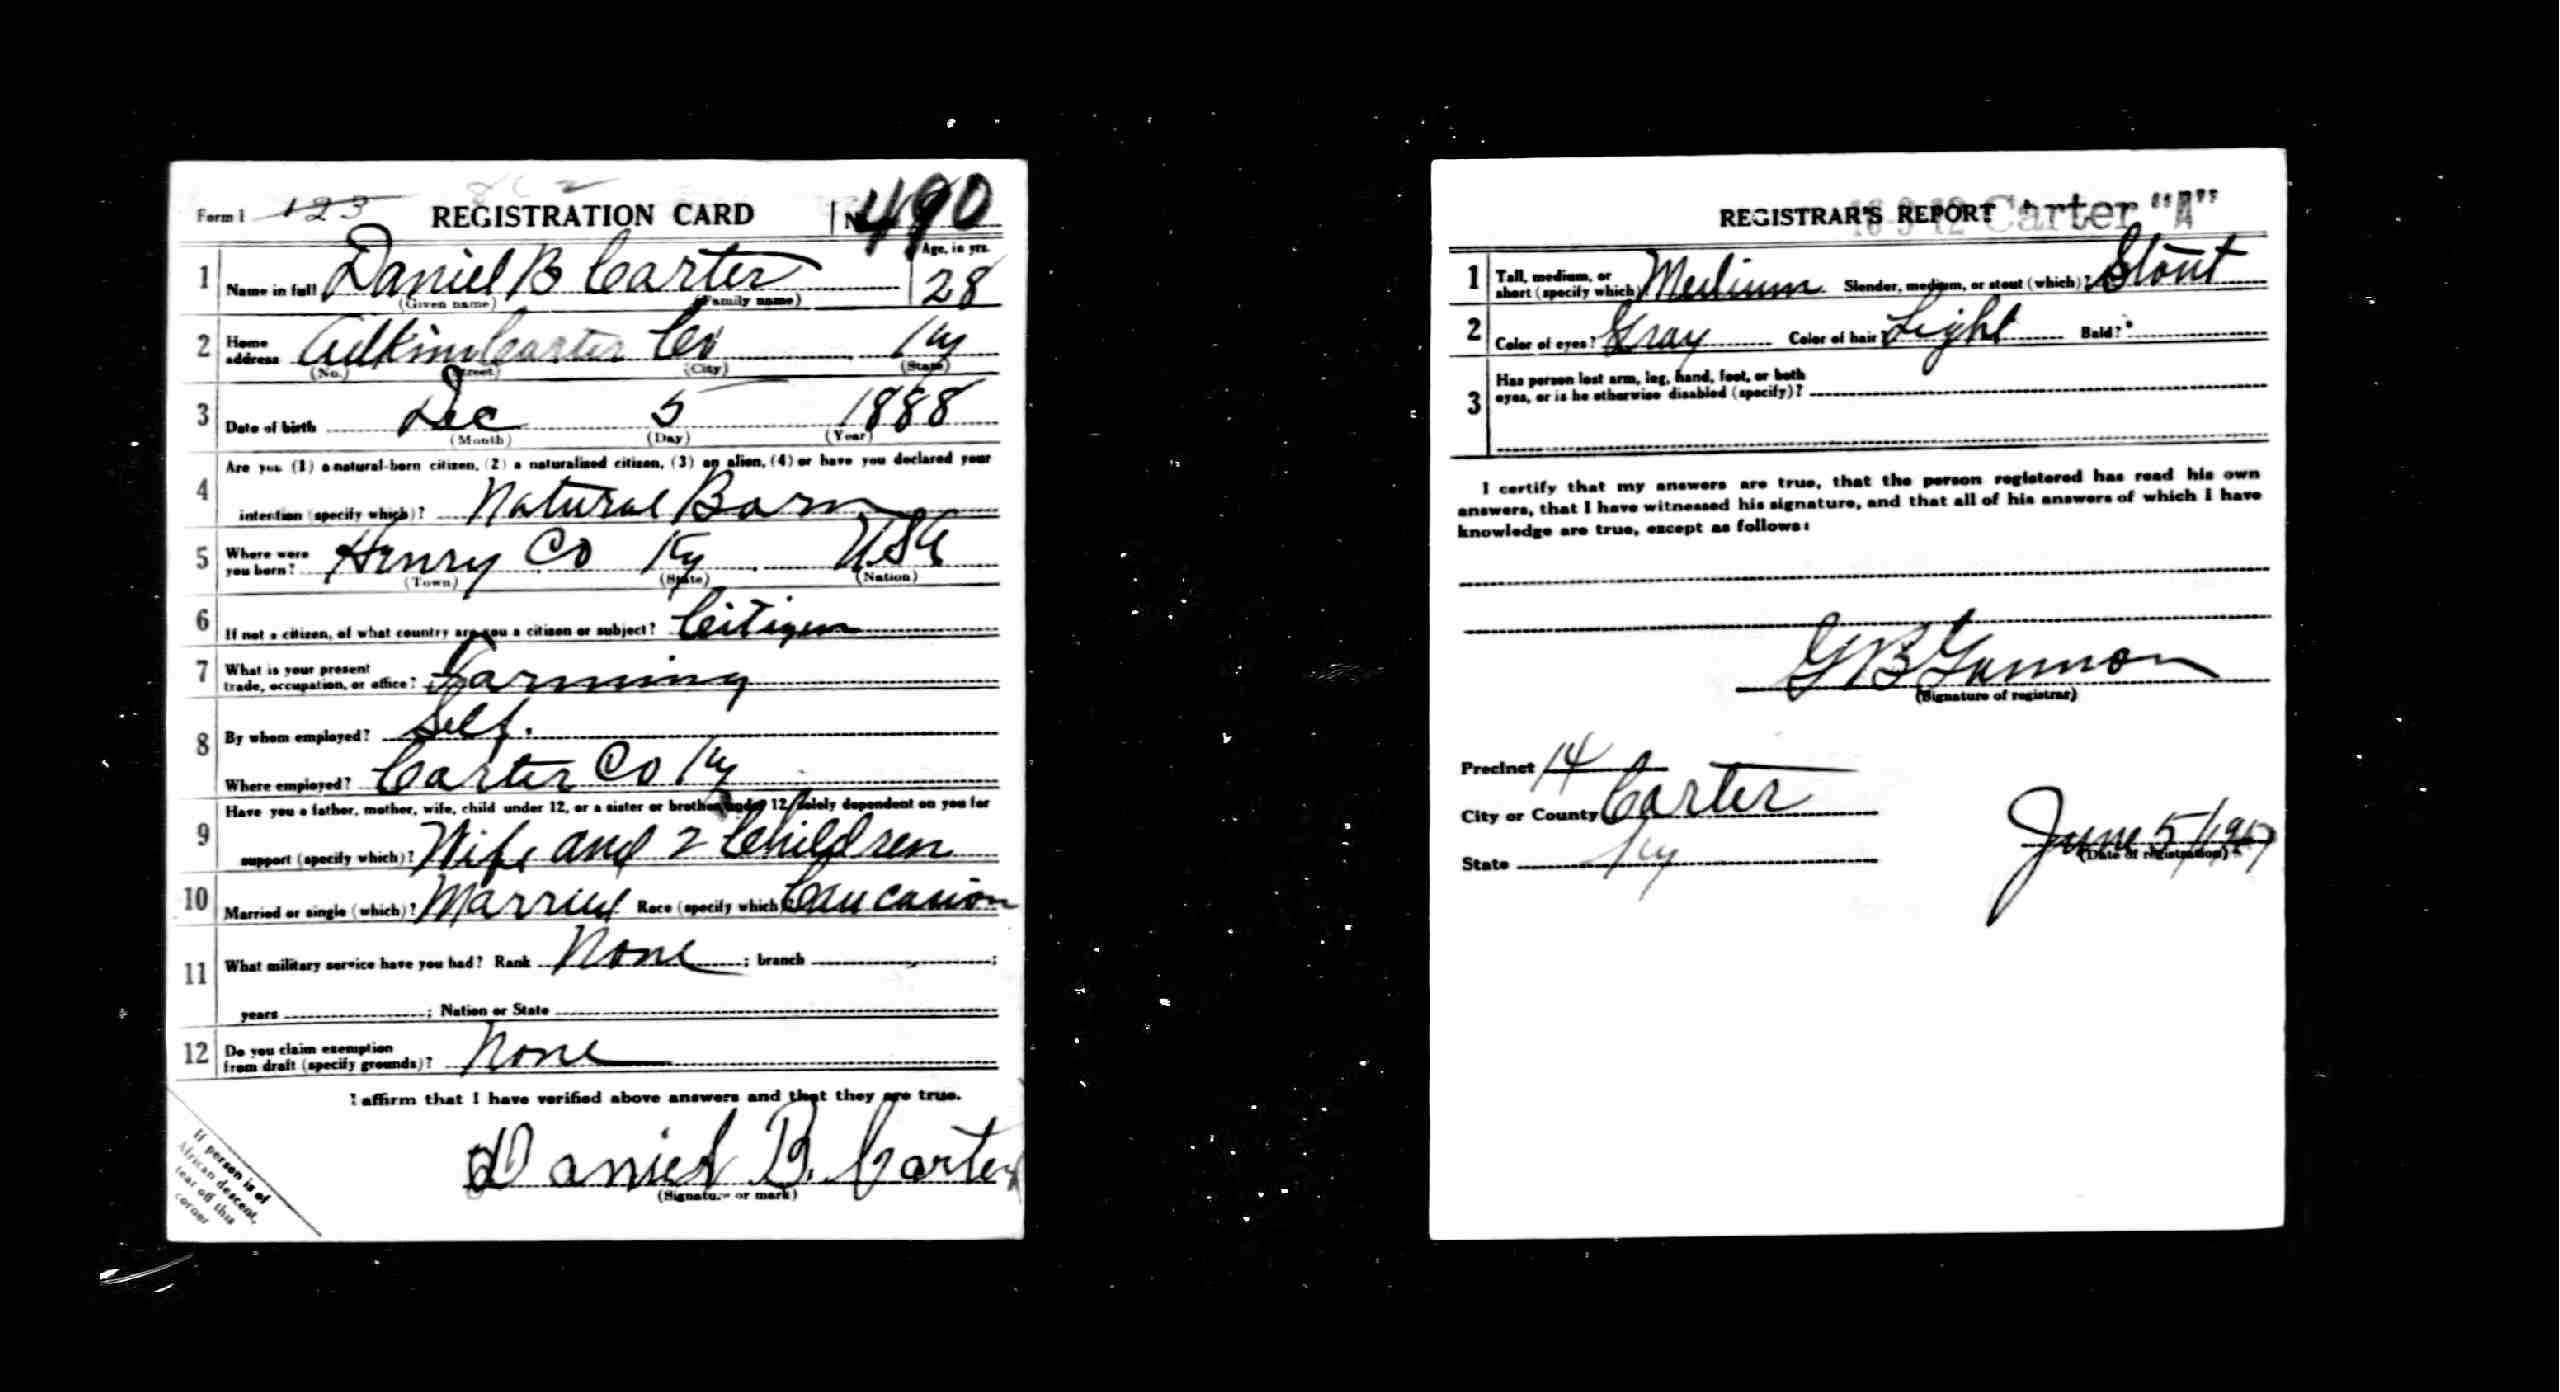 Form 1 123 REGISTRATION CARD No. 490
1 Name in full Daniel B Carter Age, in yrs. 28
(Given name) (Family name)
2 Home address Adkins Carter Co Ky
(No.) (Street) (City) (State)
3 Date of birth Dec 5 1888
(Month) (Day) (Year)
4 Are you (1) a natural-born citizen, (2) a naturalized citizen, (3) an alien, (4) or have you declared your
intention (specify which)? Natural Born
5 Where were you born? Henry Co Ky USA
(Town) (State) (Nation)
6 If not a citizen, of what country are you a citizen or subject? Citizen
7 What is your present
trade, occupation, or office? Farming
8 By whom employed? Self.
Where employed? Carter Co Ky
9 Have you a father, mother, wife, child under 12, or a sister or brother under 12, solely dependent on you for
support (specify which)? Wife and 2 Children
10 Married or single (which)? Married Race (specify which)? Caucasion
11 What military service have you had? Rank None ; branch ;
years ; Nation or State
12 Do you claim exemption
from draft (specify grounds)? None
I affirm that I have verified above answers and that they are true.
Daniel B. Carter
(Signature or mark)
If person is of
African descent,
tear off this
corner
REGISTRAR'S REPORT 16 3 12 Carter "A"
1 Tall, medium, or
short (specify which) Medium Slender, medium, or stout (which)? Stout
2 Color of eyes? Gray Color of hair? Light Bald?
3 Has person lost arm, leg, hand, foot, or both
eyes, or is he otherwise disabled (specify)?
I certify that my answers are true, that the person registered has read his own
answers, that I have witnessed his signature, and that all of his answers of which I have
knowledge are true, except as follows:
G B Gannon
(Signature of registrar)
Precinct 14
City or County Carter
State Ky
June 5/1917
(Date of registration)